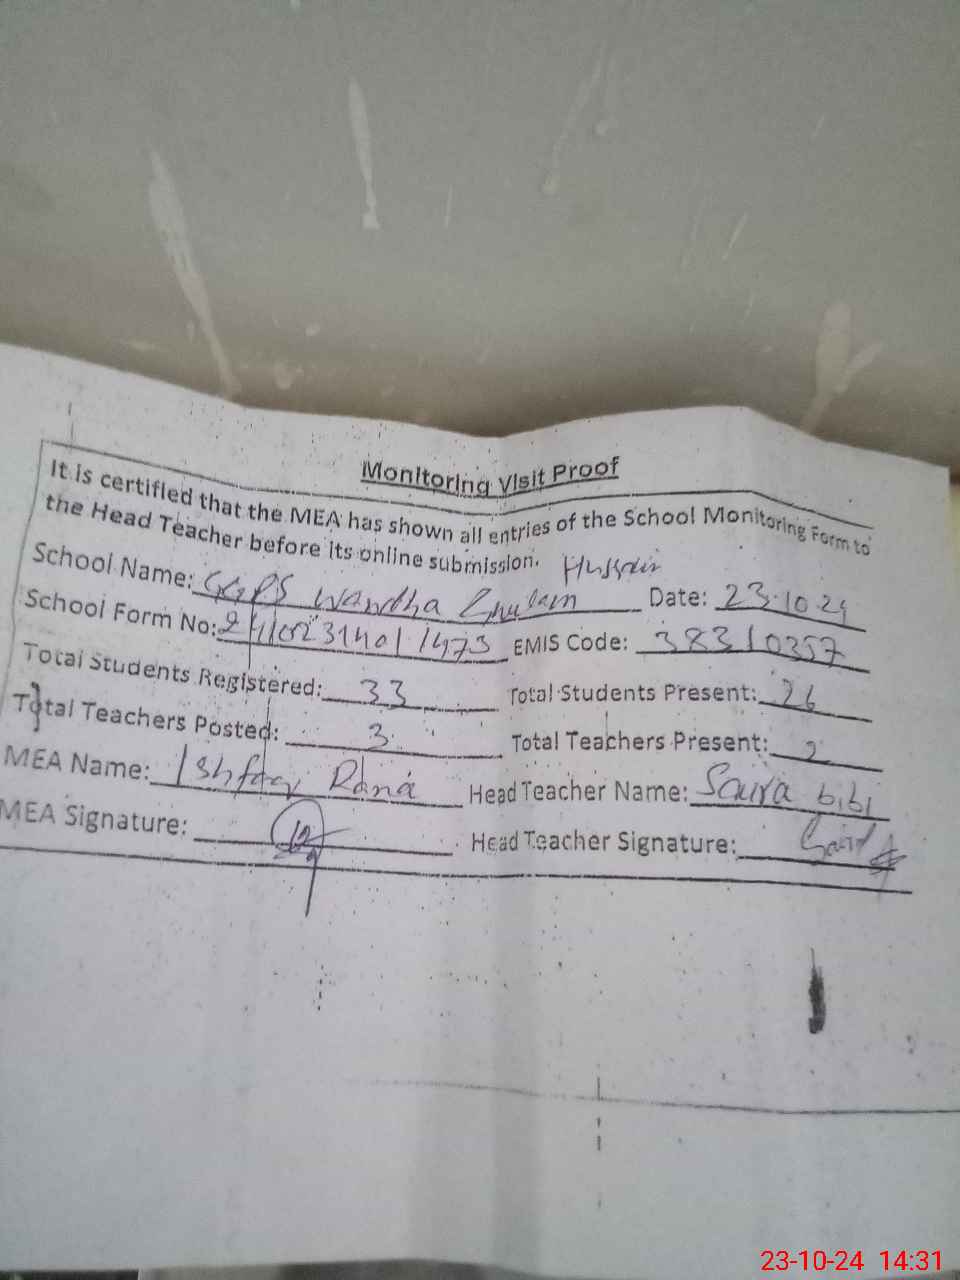 Monitoring Visit Proof
It is certified that the MEA has shown all entries of the School Monitoring Form to
the Head Teacher before its online submission.
School Name: GGPS Wandha Ghulam Hussain Date: 23-10-24
School Form No: EMIS Code: 38310357
Total Students Registered: 33 Total Students Present: 26
Total Teachers Posted: 3 Total Teachers Present: 2
MEA Name: Ishfaq Rana Head Teacher Name: Saira bibi
MEA Signature: Head Teacher Signature:
23-10-24 14:31